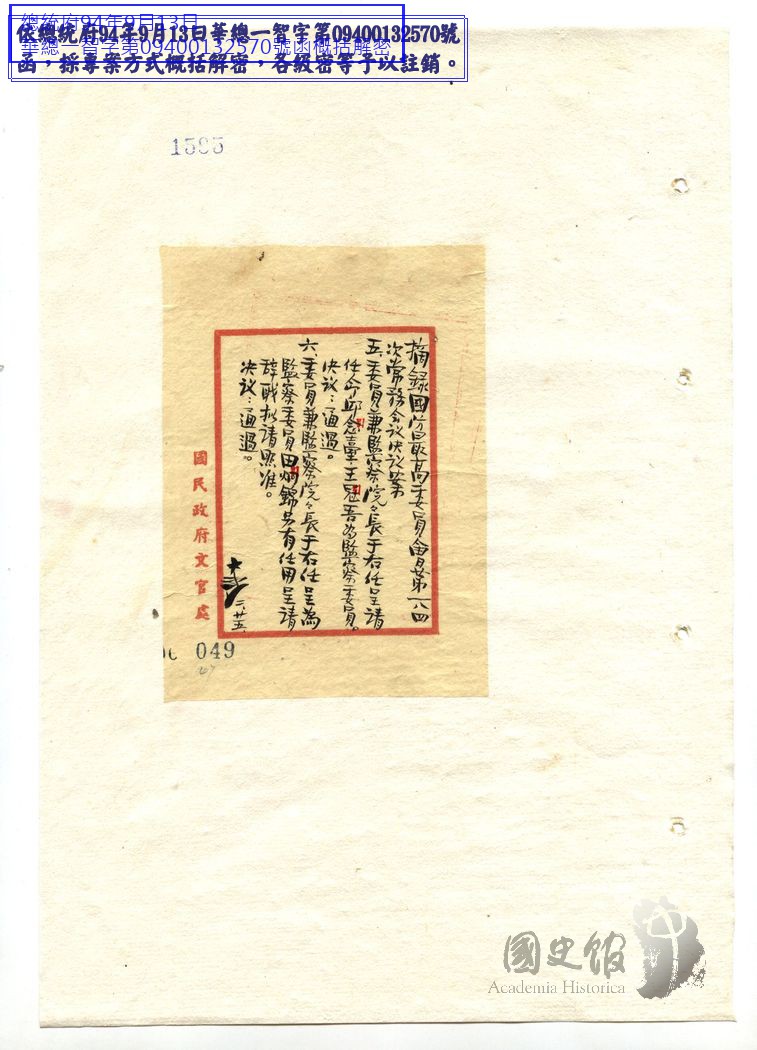 總統府94年9月13日
華總一智字第09400132570號函概括解密
依總統府94年9月13日華總一智字第09400132570號
函，採專案方式概括解密，各級密等予以註銷。
1585
摘錄國防最高委員會第一八四
次常務会议决议案
五、委員兼監察院々長于右任呈請
任命邱念臺王冠吾為監察委員。
决议：通過。
六、委員兼監察院々長于右任呈為
監察委員田炯錦另有任用呈請
辞职拟请照准。
决议：通過。
二、廿五、
國民政府文官處
049
國史館
Academia Historica